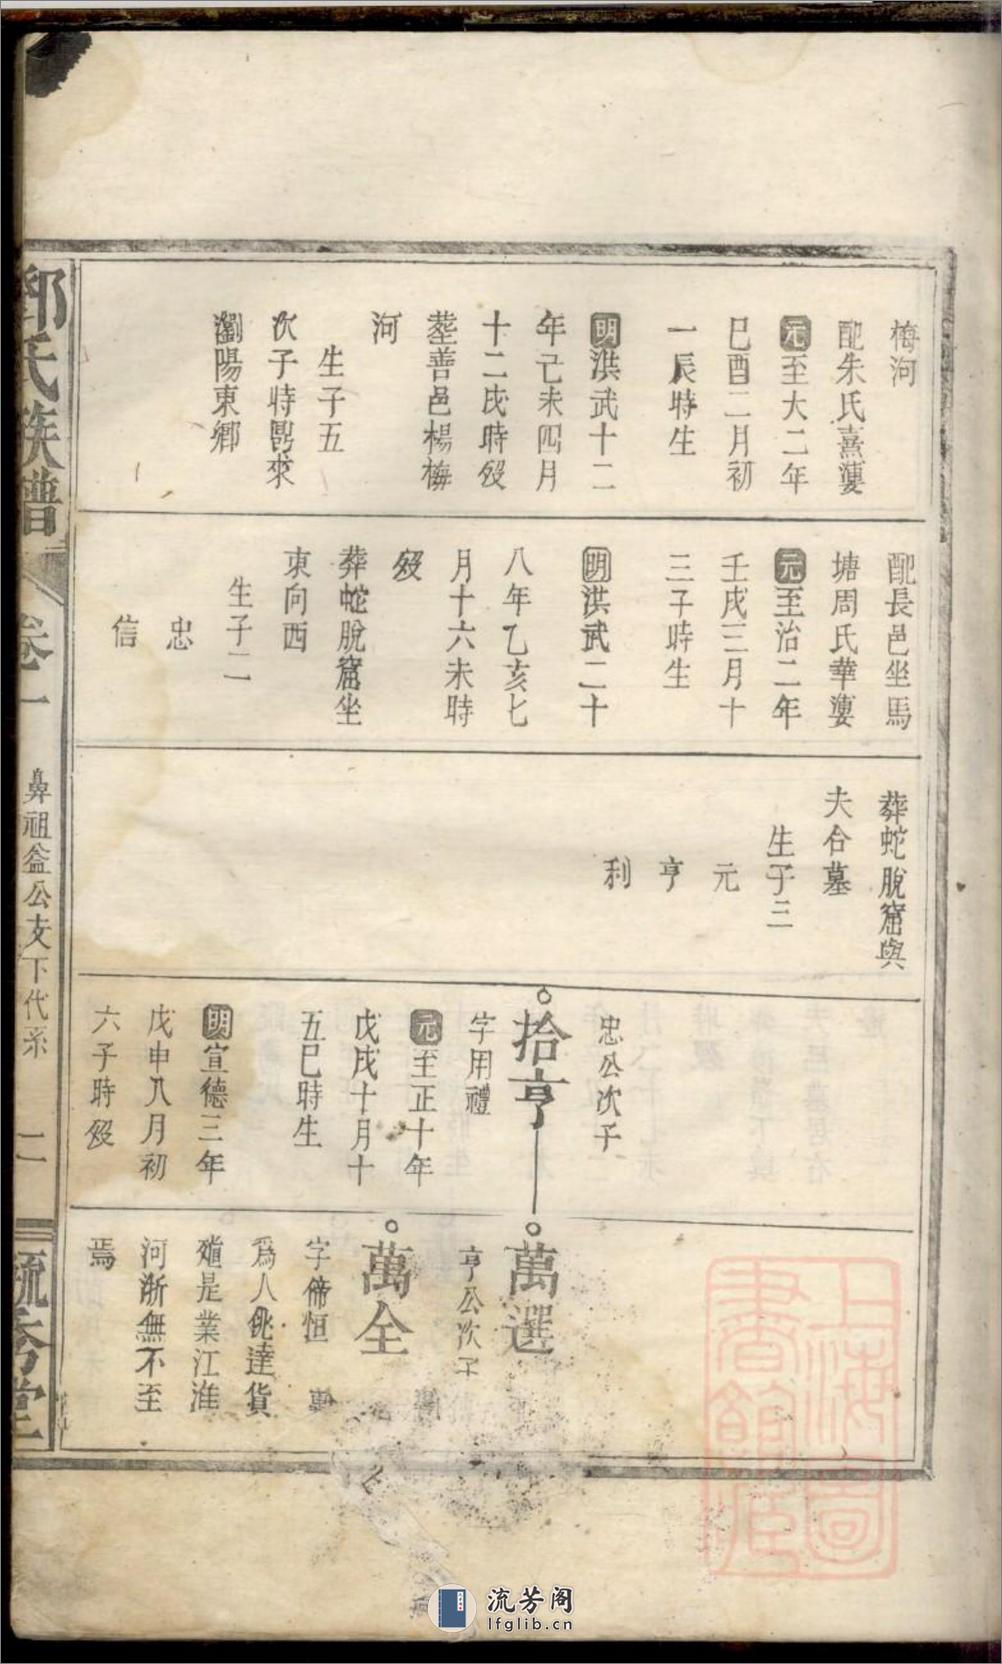 梅河
配朱氏熹蓃
元至大二年
已酉二月初
一辰時生
明洪武十二
年己未四月
十二戌時歿
塟善邑楊梅
河
生子五
次子時勗求
瀏陽東鄉
配長邑坐馬
塘周氏華蓃
元至治二年
壬戌三月十
三子時生
明洪武二十
八年乙亥七
月十六未時
歿
葬蛇脫窟坐
東向西
生子二
忠
信
葬蛇脫窟與
夫合墓
生子三
元
亨
利
忠公次子
拾亨
字用禮
元至正十年
戊戌十月十
五巳時生
明宣德三年
戊申八月初
六子時歿
萬選
亨公次子
萬全
字偹恒
為人佻達貨
殖是業江淮
河浙無不至
焉
氏族譜
卷一
鼻祖益公支下代系
二
毓秀堂
上海圖書館藏
流芳阁
lfglib.cn